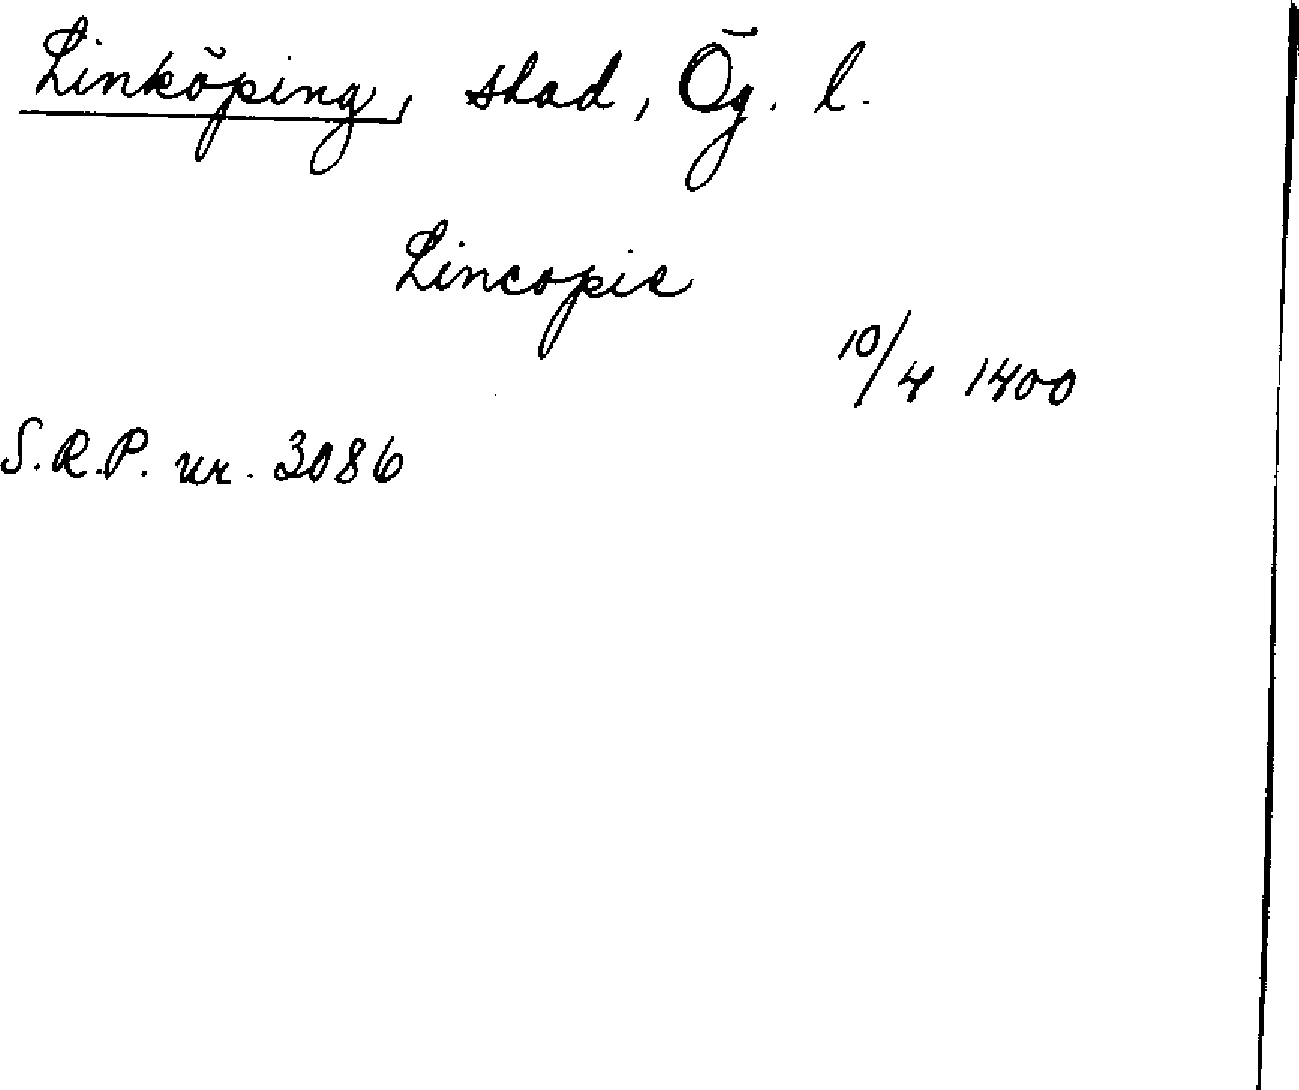 Linköping, stad, Ög. l.
Lincopie
10/4 1400
S.R.P. nr. 3086